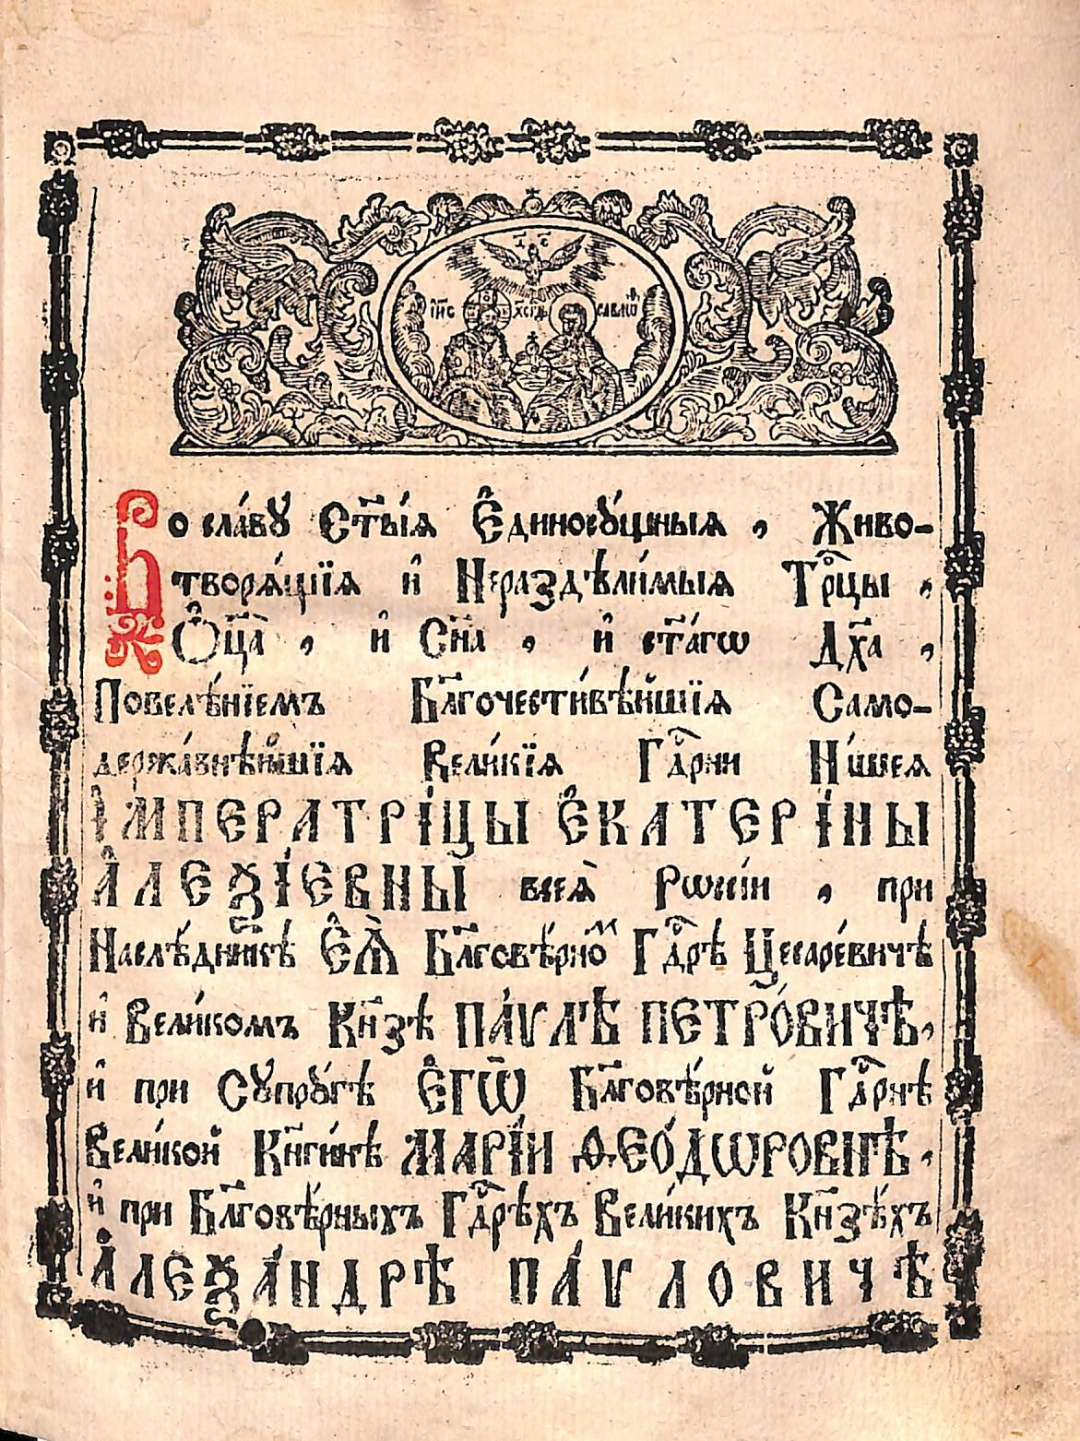 І҃С С҃
І҆И҃С Х҃С Г҃дь САВАѠ҆Ѳ
Во сла́ву Ст҃ы́ѧ Є҆диносꙋ́щныѧ , Живо-
творѧ́щїѧ и҆ Нераздѣли́мыѧ Трⷪ҇цы ,
Ѻ҆ц҃а̀ , и҆ Сн҃а , и҆ ст҃а́гѡ Дх҃а ,
Повелѣ́нїемъ Бл҃гочести́вѣйшїѧ Само-
держа́внѣйшїѧ Вели́кїѧ Гдⷭ҇рни На́шеѧ
І҆МПЕРАТРІ́ЦЫ Є҆КАТЕРІ́НЫ
А҆ЛЕѮІ́ЕВНЫ всеѧ̀ Рѡссі́и , при
Наслѣ́дникѣ Є҆Ѧ̀ Бл҃говѣ́рномⷨ Гдⷭ҇рѣ Цесаре́вичѣ
и҆ Вели́комъ Кн҃зѣ ПА́ѴЛѢ ПЕТРО́ВИЧѢ,
и҆ при Сꙋпрꙋ́гѣ Є҆ГѠ̀ Бл҃говѣ́рной Гдⷭ҇рнѣ
Вели́кой Кн҃ги́нѣ МАРІ́И ѲЕО́ДѠРОВНѢ,
и҆ при Бл҃говѣ́рныхъ Гдⷭ҇рѣхъ Вели́кихъ Кн҃зѣ́хъ
А҆ЛЕѮА́НДРѢ ПА́ѴЛОВИЧѢ